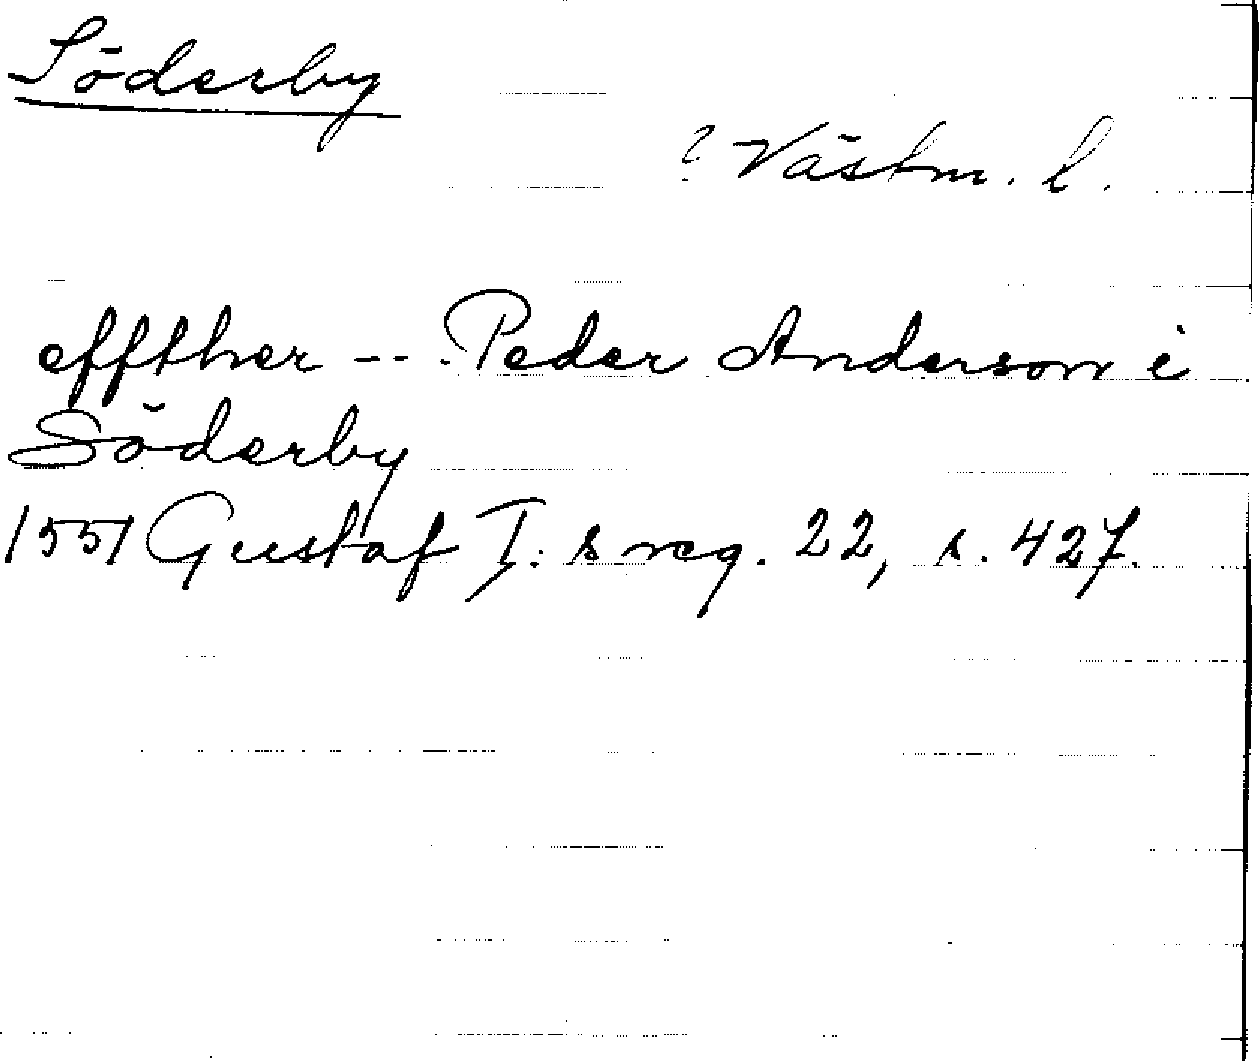 Söderby
? Västm. l.
effther --- Peder Anderson i
Söderby
1551 Gustaf I:s reg. 22, s. 427.